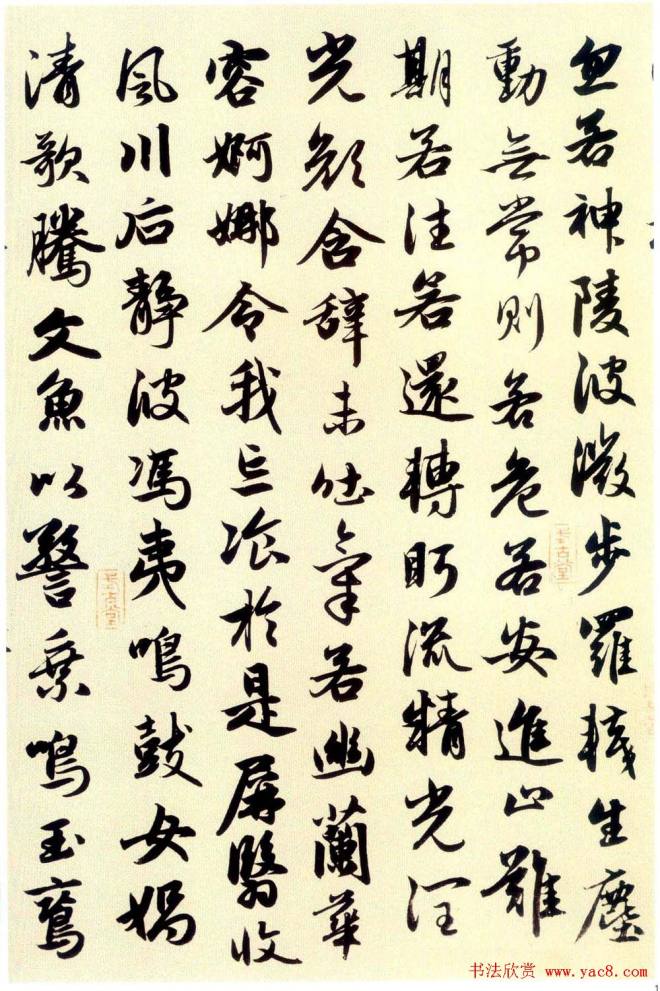 忽若神陵波微步羅韈生塵
動無常則若危若安進止難
期若往若還轉眄流精光潤
光顏含辭未吐氣若幽蘭華
容婀娜令我忘飡於是屏翳收
風川后靜波馮夷鳴鼓女媧
清歌騰文魚以警乘鳴玉鸞
书法欣赏 www.yac8.com